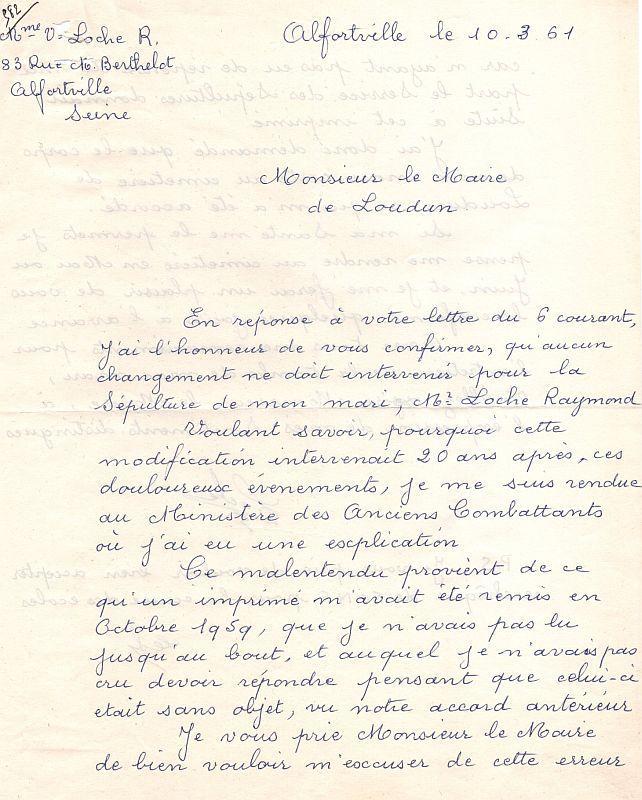 282
Mme Vve Loche R.
83 Rue M. Berthelot
Alfortville
Seine
Alfortville le 10.3.61
Monsieur le Maire
de Loudun
En réponse à votre lettre du 6 courant,
J'ai l'honneur de vous confirmer, qu'aucun
changement ne doit intervenir pour la
Sépulture de mon mari, Mr Loche Raymond
Voulant savoir, pourquoi cette
modification intervenait 20 ans après, ces
douloureux évenements, je me suis rendue
au Ministère des Anciens Combattants
où j'ai eu une explication
Ce malentendu provient de ce
qu'un imprimé m'avait été remis en
Octobre 1959, que je n'avais pas lu
jusqu'au bout, et auquel je n'avais pas
cru devoir répondre pensant que celui-ci
était sans objet, vu notre accord antérieur
Je vous prie Monsieur le Maire
de bien vouloir m'excuser de cette erreur